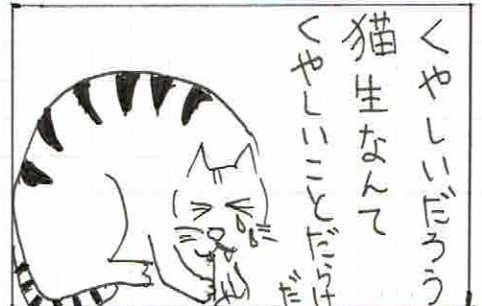 くやしいだろう
猫生なんて
くやしいことだらけ
だ